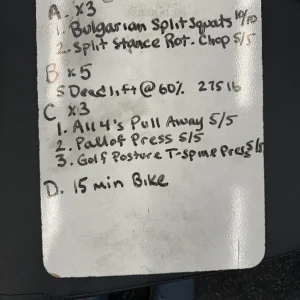 A. x3
1. Bulgarian Split Squats 10/10
2. Split Stance Rot. Chop 5/5
B x5
5 Deadlift @ 60% 275 lb
C x3
1. All 4's Pull Away 5/5
2. Pallof Press 5/5
3. Golf Posture T-spine Press 5/5
D. 15 min Bike